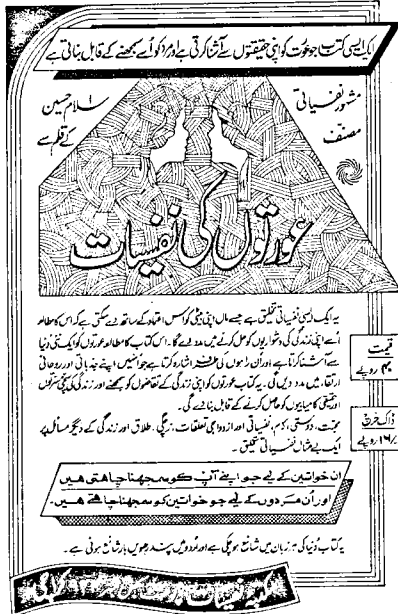 ایک ایسی کتاب جو عورت کو اپنی حقیقتوں سے آشنا کرتی ہے اور مرد کو اُسے سمجھنے کے قابل بناتی ہے
مشہور نفسیاتی
مصنف
سلام حسین
کے قلم سے
عورتوں کی نفسیات
یہ ایک ایسی نفسیاتی تخلیق ہے جسے ماں اپنی بیٹی کو اس اعتماد کے ساتھ دے سکتی ہے کہ اس کا مطالعہ
اُسے اپنی زندگی کی دشواریوں کو حل کرنے میں مدد دے گا۔ اس کتاب کا مطالعہ عورتوں کو ایک نئی دنیا
سے آشنا کرتا ہے اور اُن راہوں کی طرف اشارہ کرتا ہے جو انہیں اپنے جذباتی اور روحانی
ارتقاء میں مدد دیں گی۔ یہ کتاب عورتوں کو اپنی زندگی کے تقاضوں کو سمجھنے اور زندگی کی سچی مسرتوں
اور حقیقی کامیابیوں کو حاصل کرنے کے قابل بنا دے گی۔
محبت، دوستی، نفسیاتی اور ازدواجی تعلقات، زچگی، طلاق اور زندگی کے دیگر مسائل پر
ایک بے مثال نفسیاتی تخلیق۔
قیمت
۴۰ روپے
ڈاک خرچ
۱۶/ روپے
ان خواتین کے لیے جو اپنے آپ کو سمجھنا چاہتی ھیں
اور اُن مَردوں کے لیے جو خواتین کو سمجھنا چاھتے ھیں۔
یہ کتاب دُنیا کی زبان میں شائع ہو چکی ہے اور اُردو میں پندرھویں بار شائع ہوئی ہے۔
مکتبہ نفسیات پوسٹ بکس نمبر کراچی